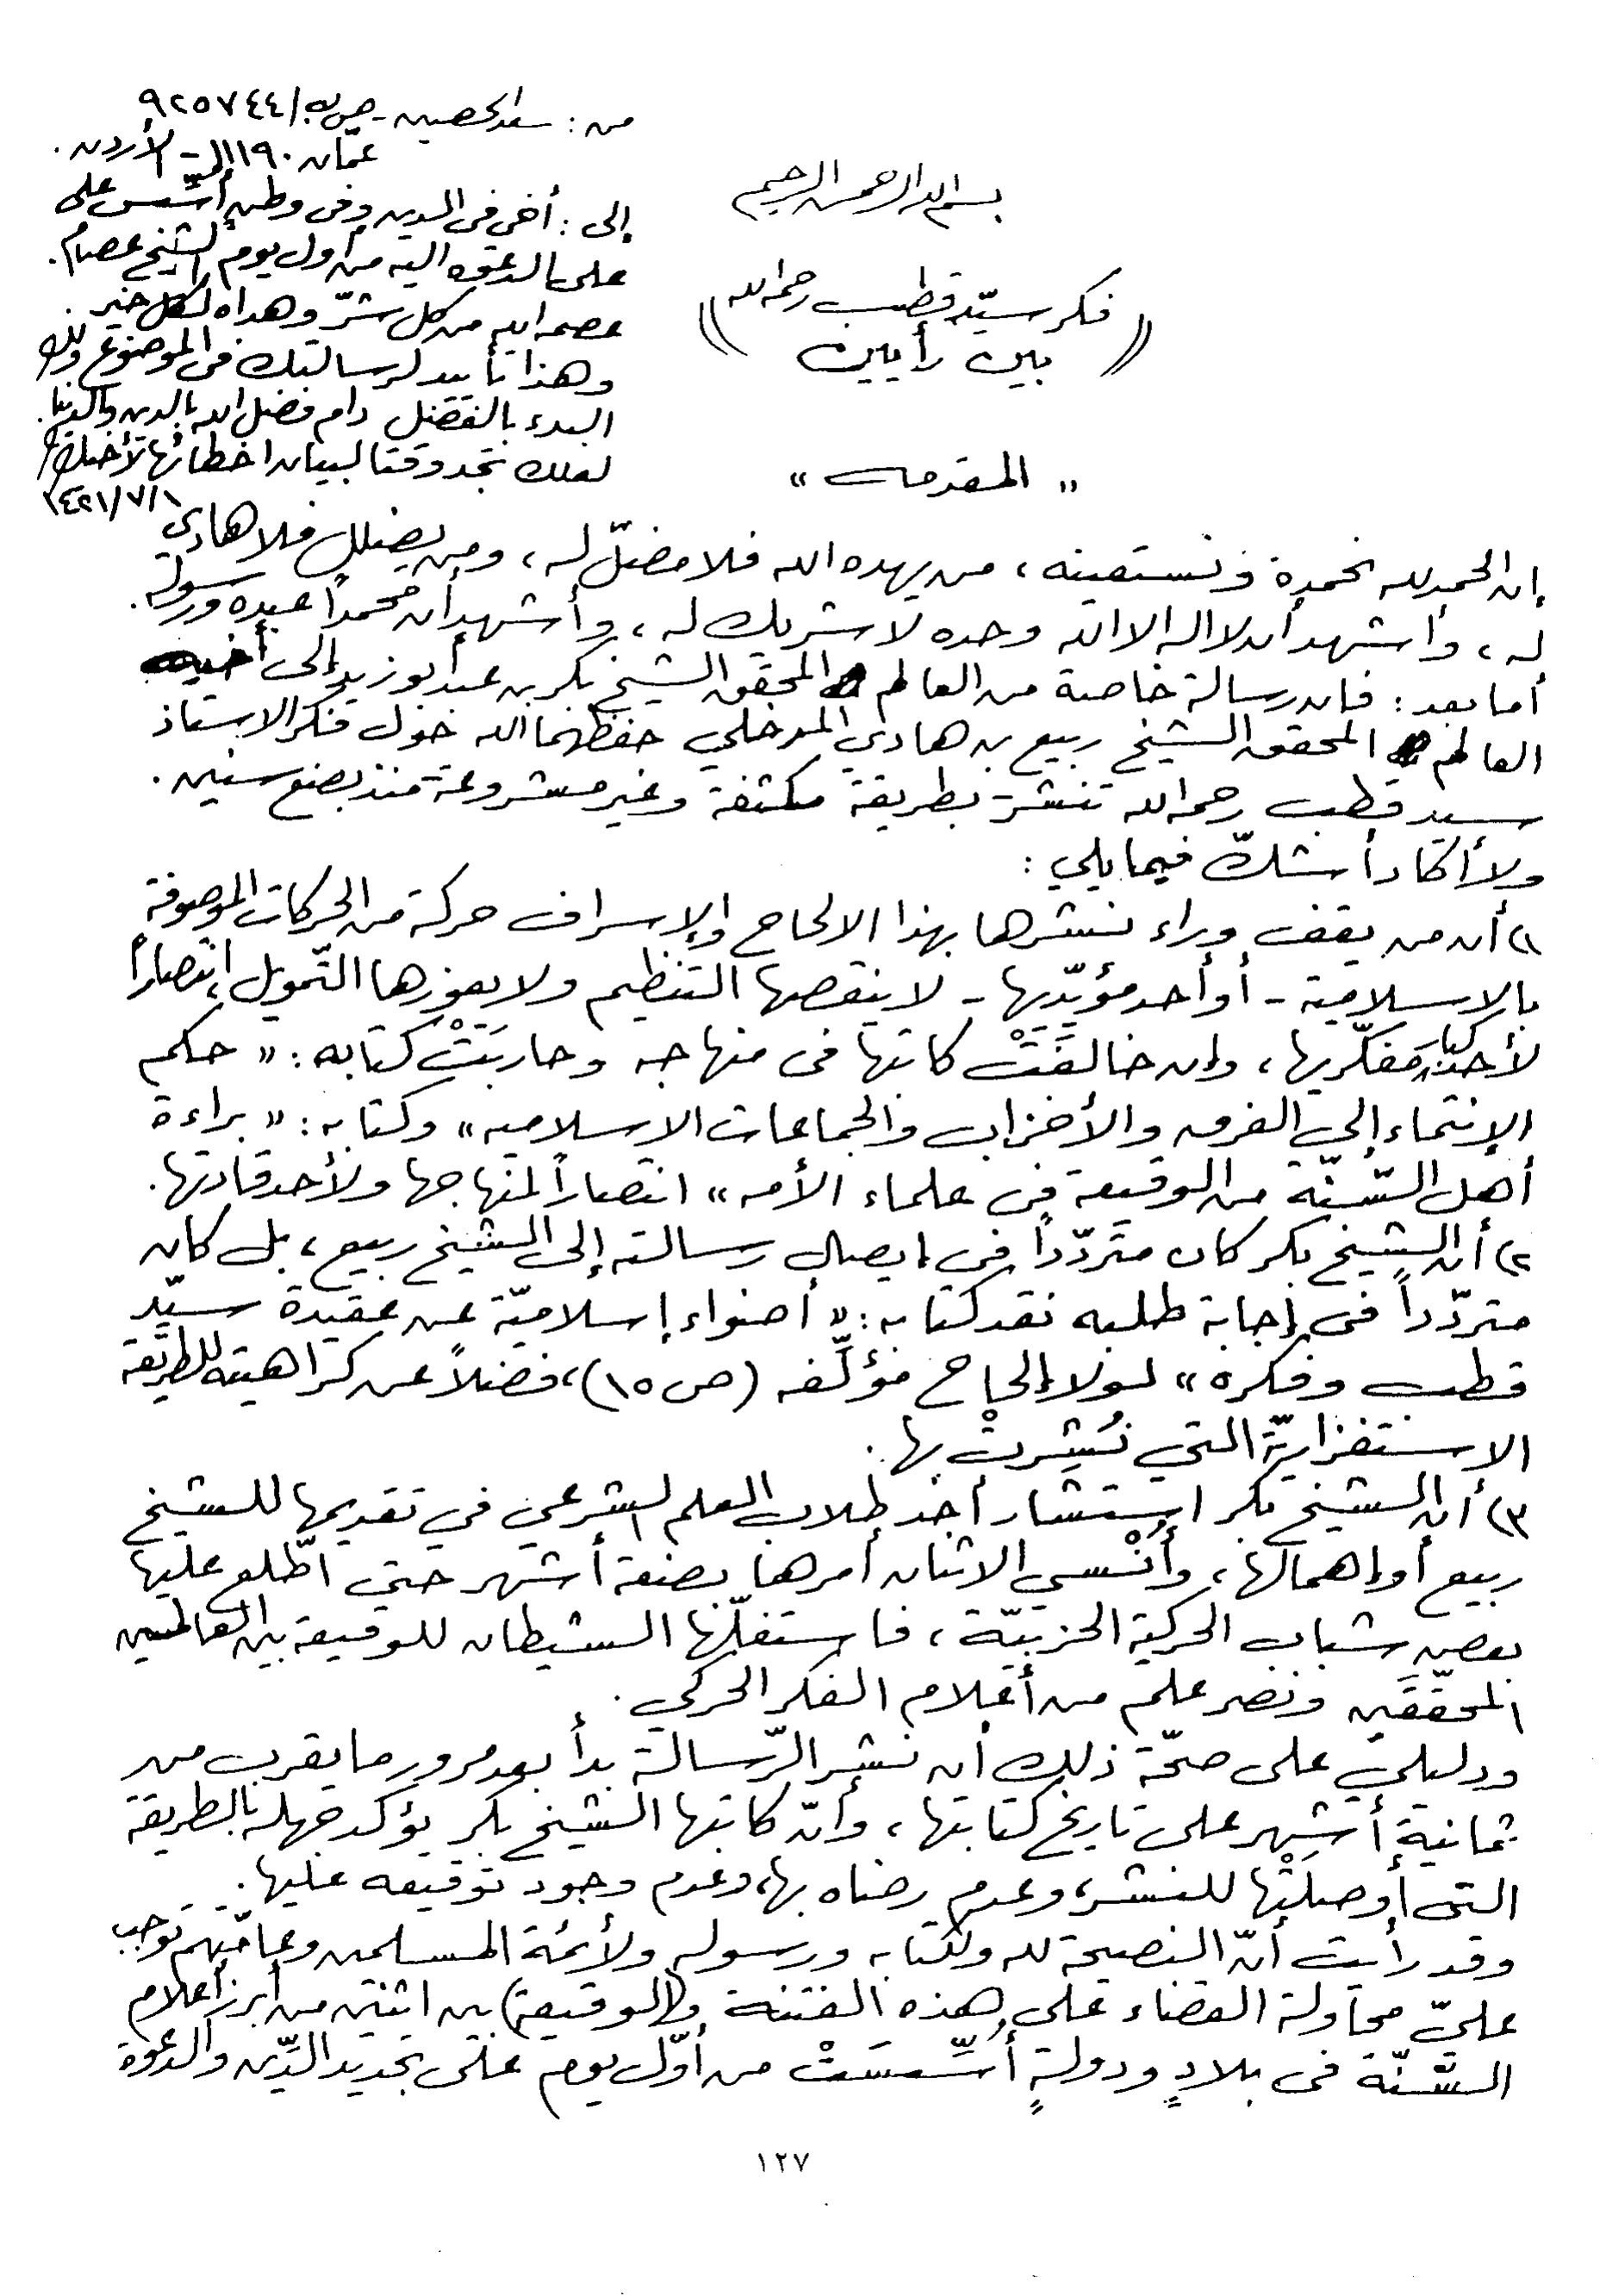 من : سعد الحصين - ص ب / ٩٢٥٧٤٤
عمّان ١١١٩٠ - الأردن .
إلى : أخي في الدين وفي وطن أُسّس على
على الدعوة اليه من أول يوم الشيخ عصام .
عصمه الله من كل شرّ وهداه لكل خير .
وهذا تأييد لرسالتك في الموضوع ولك
البدء بالفضل دام فضل الله بالدين والدنيا .
لعلك تجد وقتا لبيان اخطائها لأخيك /
١٤٢١/٧/١
بسم الله الرحمن الرحيم
(( فكر سيّد قطب رحمه الله
بين رأيين ))
" المقدمه "
إن الحمد لله نحمده ونستعينه ، من يهده الله فلا مضلّ له ، ومن يضلل فلا هادي
له ، وأشهد أن لا اله الا الله وحده لا شريك له ، وأشهد أن محمداً عبده ورسوله .
أما بعد : فان رسالة خاصة من العالم المحقق الشيخ بكر بن عبد أبو زيد إلى أخيه
العالم المحقق الشيخ ربيع بن هادي المدخلي حفظهما الله حول فكر الاستاذ
سيد قطب رحمه الله تنشر بطريقة مكثفة وغير مشروعة منذ بضع سنين .
ولا أكاد أشكّ فيما يلي :
١) أن من يقف وراء نشرها بهذا الالحاح والإسراف حركة من الحركات الموصوفة
بالاسلامية - أو أحد مؤيّديها - لا ينقصها التنظيم ولا يعوزها التّمويل ، انتصاراً
لأحد كبار مفكّريها ، وإن خالفَتْ كاتبها في منهاجه وحاربَتْ كتابه : " حكم
الإنتماء إلى الفرق والأحزاب والجماعات الاسلاميه " وكتابه : " براءة
أهل السّنّة من الوقيعة في علماء الأمه " انتصاراً لمنهاجها ولأحد قادتها .
٢) أن الشيخ بكر كان متردّداً في ايصال رسالته إلى الشيخ ربيع ، بل كان
متردّداً في إجابة طلبه نقد كتابه : " أضواء إسلاميّة عن عقيدة سيّد
قطب وفكره " لولا إلحاح مؤلّفه (ص ١٥) ، فضلاً عن كراهيته للطريقة
الاستفزازيّة التي نُشِرتْ بها .
٣) أن الشيخ بكر استشار أحد طلاب العلم الشرعي في تقديمها للشيخ
ربيع أو إهمالها ، وأُنْسي الاثنان أمرها بضعة أشهر حتى اطّلع عليها
بعض شباب الحركية الحزبيّة ، فاستغلّها الشيطان للوقيعة بين العالمين
المحقّقَين ونصر علم من أعلام الفكر الحركي .
ودليلي على صحّة ذلك أن نشر الرّسالة بدأ بعد مرور ما يقرب من
ثمانية أشهر على تاريخ كتابتها ، وأنّ كاتبها الشيخ بكر يؤكد جهله بالطريقة
التي أوصلَتْها للنشر ، وعدم رضاه بها ، وعدم وجود توقيعه عليها .
وقد رأيت أنّ النصيحة لله ولكتابه ورسوله ولأئمة المسلمين وعامّتهم توجب
عليّ محاولة القضاء على هذه الفتنة و(الوقيعة) بين اثنين من أبرز أعلام
السّنّة في بلادٍ ودولةٍ أُسِّسَتْ من أوّل يوم على تجديد الدّين والدعوة
١٢٧